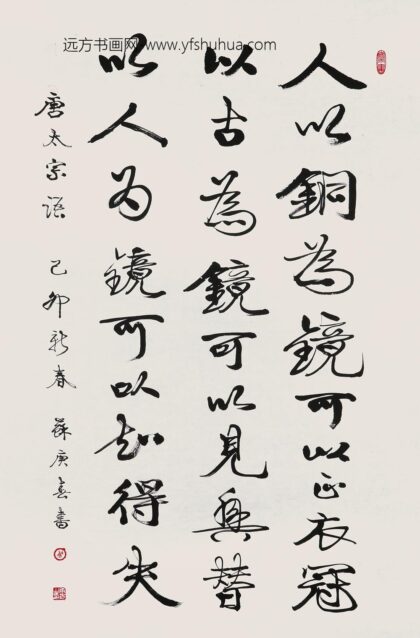 远方书画网www.yfshuhua.com
人以銅為鏡可以正衣冠
以古為鏡可以見興替
以人为鏡可以知得失
唐太宗语 己卯新春 蘇庚春書